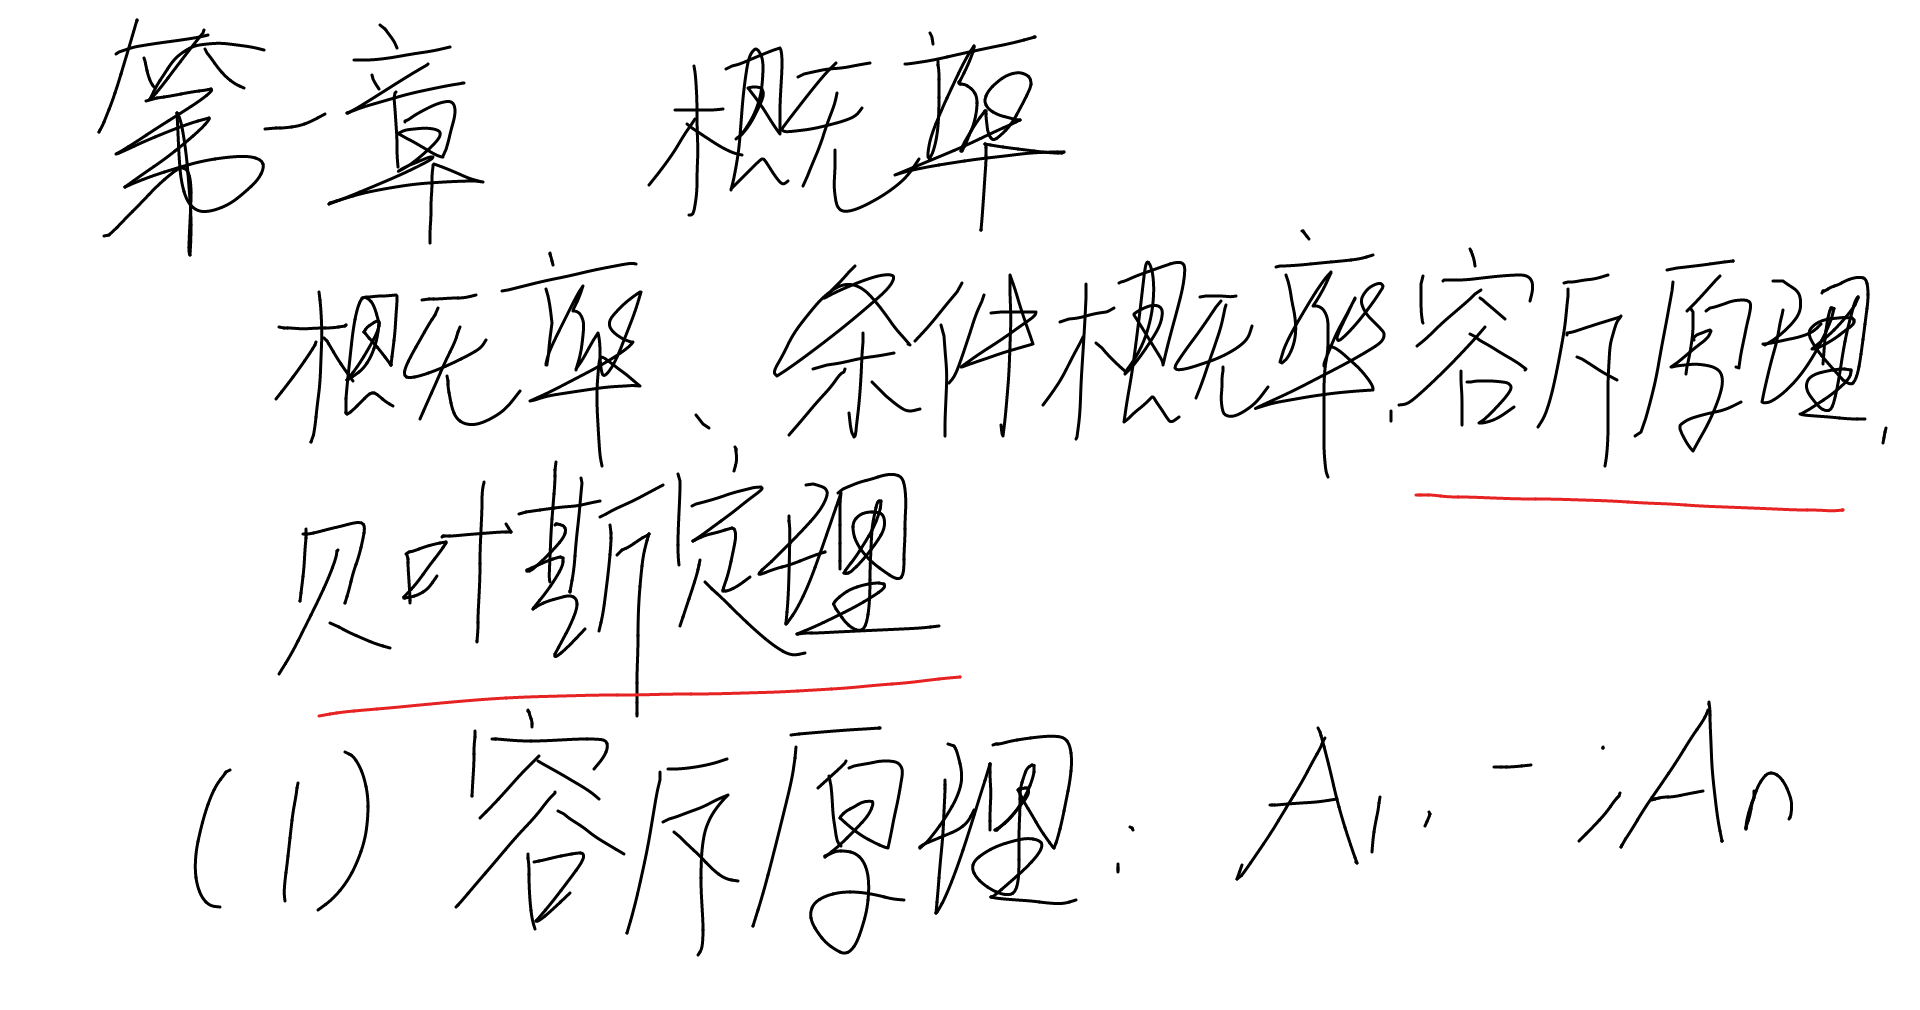 第一章 概率
概率、条件概率.容斥原理.
贝叶斯定理
(1) 容斥原理: A1, - , An